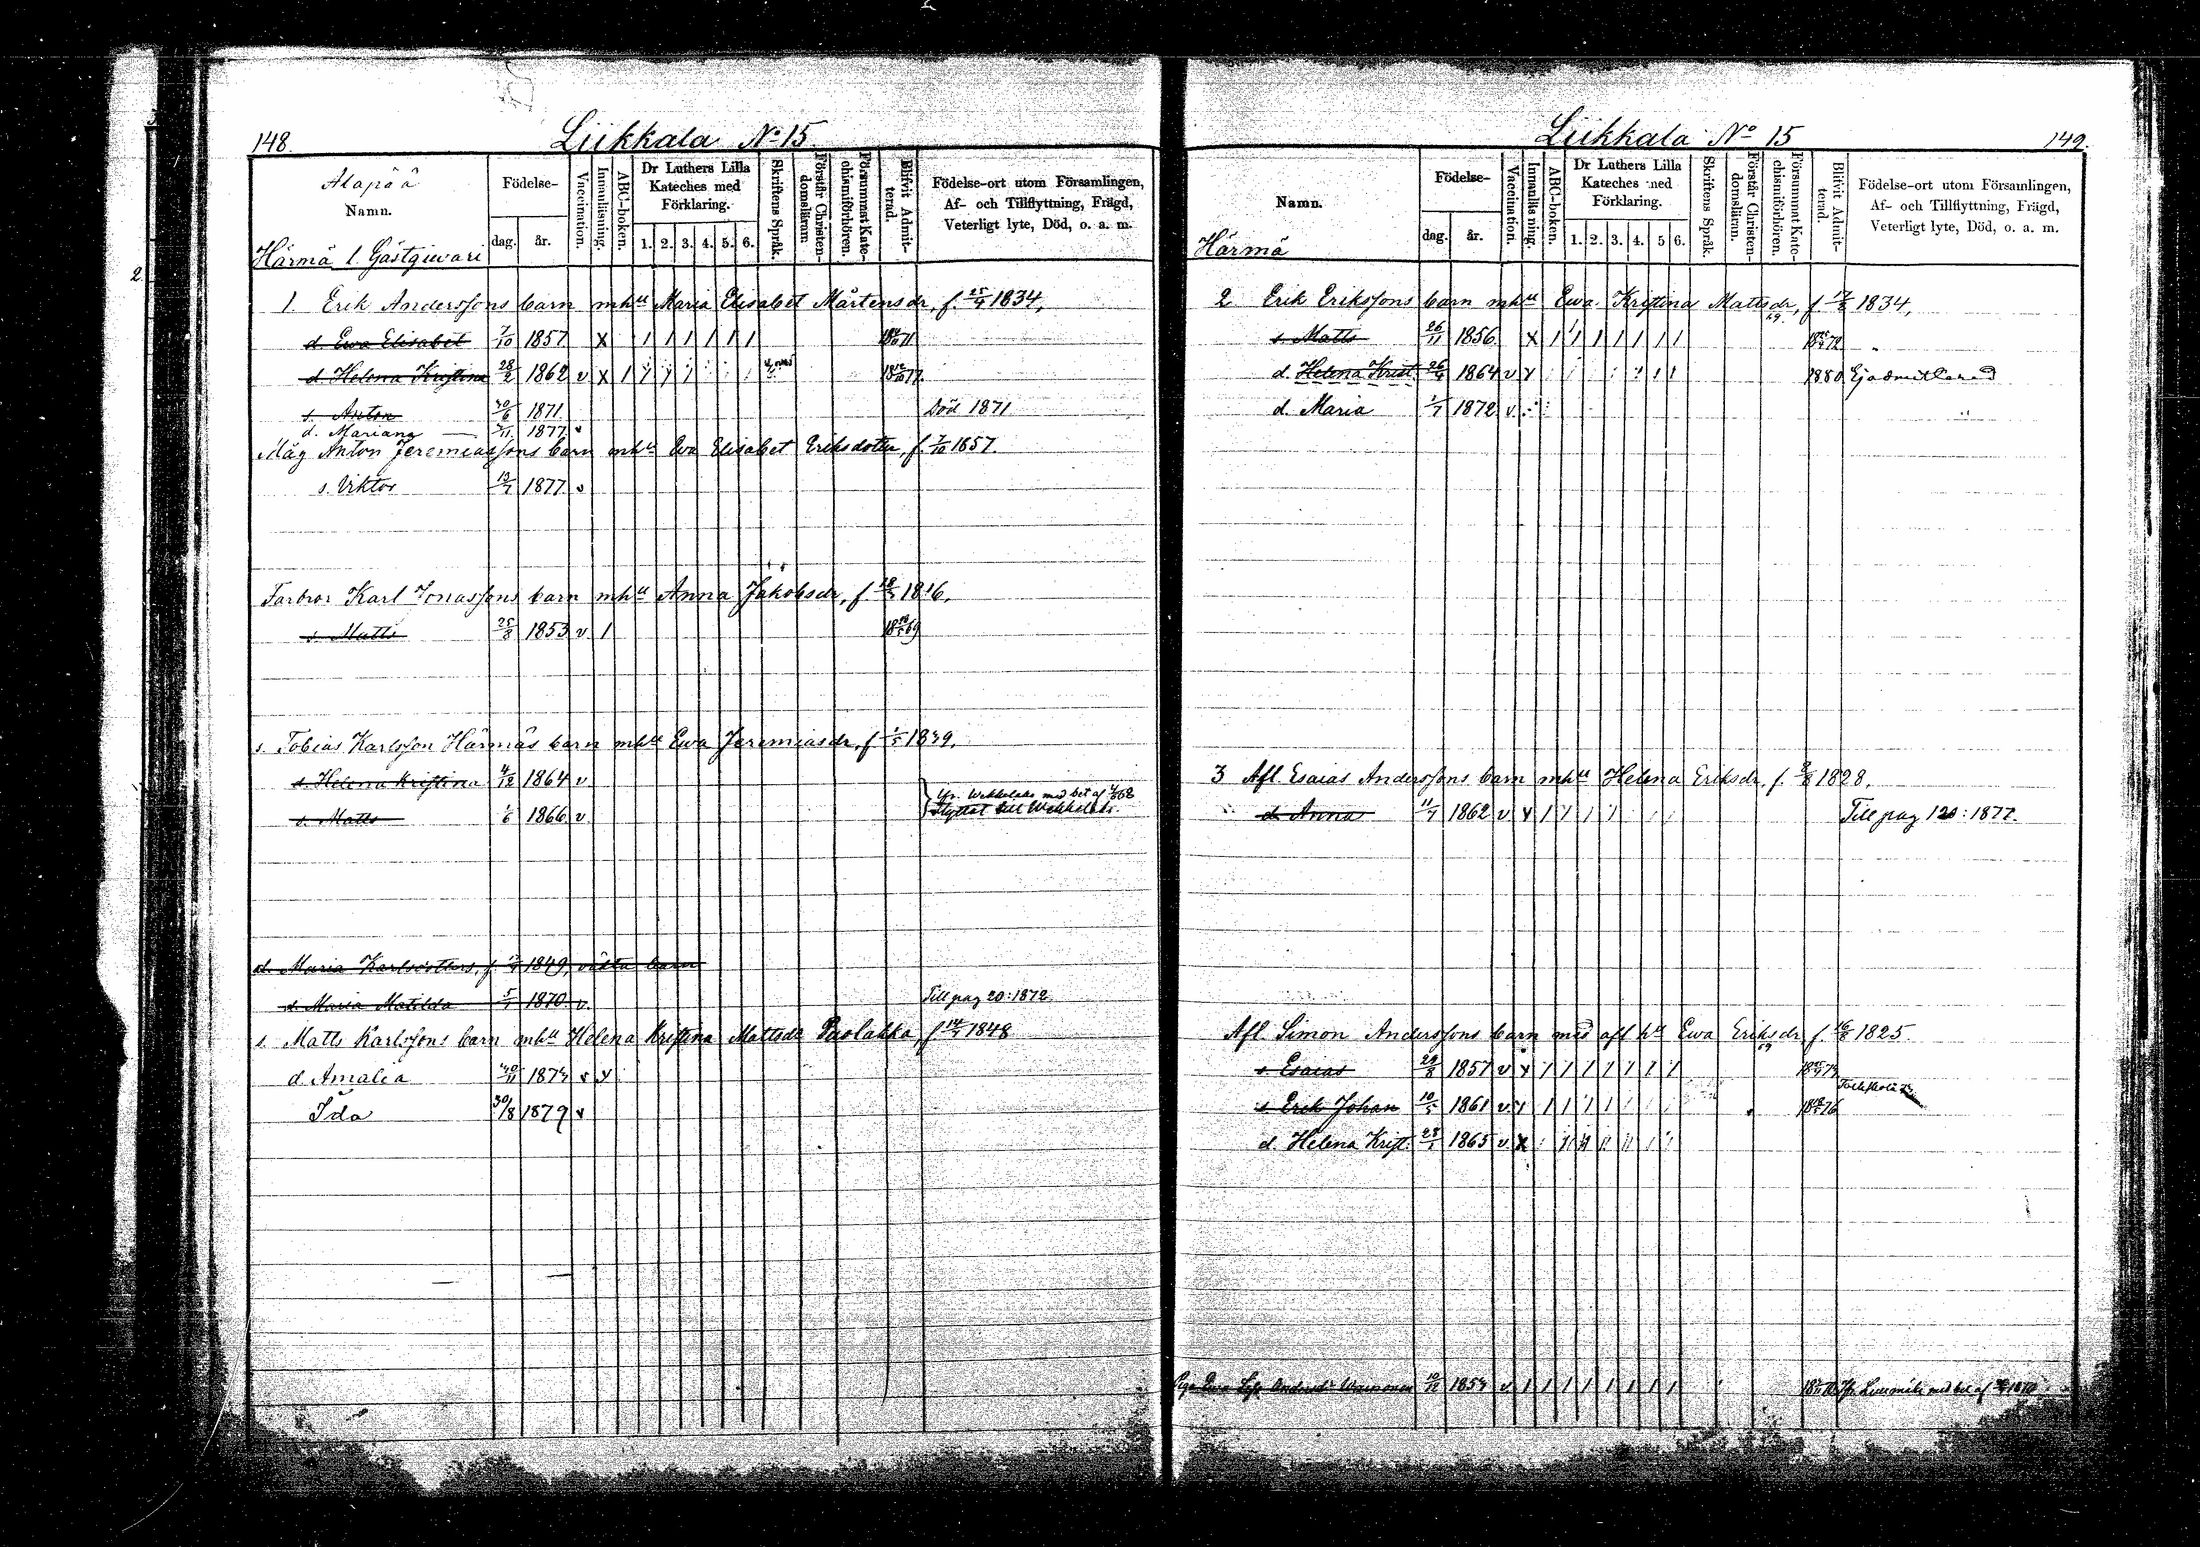 148. Liikkala No 15.
Alapää
Namn. Födelse- dag. år. Vaccination. Innanläsning. ABC-boken. Dr Luthers Lilla Kateches med Förklaring. 1. 2. 3. 4. 5. 6. Skriftens Språk. Förstår Christendomsläran. Försummat Katechismiförhören. Blifvit Admitterad. Födelse-ort utom Församlingen, Af- och Tillflyttning, Frägd, Veterligt lyte, Död, o. a. m.
Härmä l. Gästgiwari
1 Erik Anderssons barn mhu Maria Elisabet Mårtensdr, f. 25/9 1834,
d. Ewa Elisabet 7/10 1857 X / / / / / /
d. Helena Kristina 28/2 1862 v X / / / /
s. Anton 30/6 1871. Död 1871
d. Mariana 1877 v
Måg Anton Jeremiassons barn mhu Eva Elisabet Eriksdotter, f. 7/10 1857.
s. Viktor 1877 v
Farbror Karl Jonassons barn mhu Anna Jakobsdr, f. 1816,
s. Matts 25/8 1853 v /
s. Tobias Karlsson Härmäs barn mhu Ewa Jeremiasdr, f. 1839.
s. Helena Kristina 4/12 1864 v
s. Matts 1/6 1866 v
Flyttat till Wekkelaks
d. Maria Karlsdotters, f. 1849, oäkta barn
d. Maria Matilda 1870 v. Till pag 20: 1872
s. Matts Karlssons barn mhu Helena Kristina Mattsdr f. 1848
d. Amalia 30/11 1873 v
Ida 30/8 1879 v
Liikkala No 15 149.
Namn. Födelse- dag. år. Vaccination. Innanläsning. ABC-boken. Dr Luthers Lilla Kateches med Förklaring. 1. 2. 3. 4. 5 6. Skriftens Språk. Förstår Christendomsläran. Försummat Katechismiförhören. Blifvit Admitterad. Födelse-ort utom Församlingen, Af- och Tillflyttning, Frägd, Veterligt lyte, Död, o. a. m.
Härmä
2 Erik Erikssons barn mhu Ewa Kristina Mattsdr, f. 1834,
s. Matts 26/11 1856 X / / / / / / /
d. Helena Krist. 1864 v 1880 Ej admitterad
d. Maria 1872 v
3 Afl. Esaias Anderssons barn mhu Helena Eriksdr, f. 1828.
d. Anna 1862 v Till pag 120: 1877.
Afl. Simon Anderssons barn med afl hu Ewa Eriksdr f. 16/8 1825.
s Esaias 29/8 1857 v
s Erik Johan 10/5 1861 v
d. Helena Krist. 1865 v X
1854 v / / / / / / / /